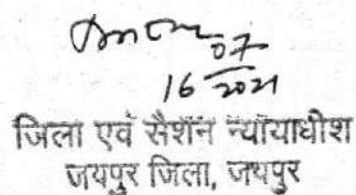 07
16 2021
जिला एवं सैशन न्यायाधीश
जयपुर जिला, जयपुर